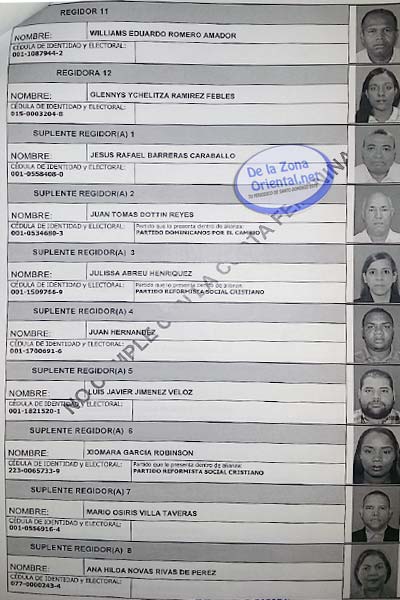 REGIDOR 11
NOMBRE: WILLIAMS EDUARDO ROMERO AMADOR
CÉDULA DE IDENTIDAD Y ELECTORAL:
001-1087944-2
REGIDORA 12
NOMBRE: GLENNYS YCHELITZA RAMIREZ FEBLES
CÉDULA DE IDENTIDAD Y ELECTORAL:
015-0003204-8
SUPLENTE REGIDOR(A) 1
NOMBRE: JESUS RAFAEL BARRERAS CARABALLO
CÉDULA DE IDENTIDAD Y ELECTORAL:
001-0558408-0
De la Zona
Oriental.net
TU PERIODICO DE SANTO DOMINGO ESTE
SUPLENTE REGIDOR(A) 2
NOMBRE: JUAN TOMAS DOTTIN REYES
CÉDULA DE IDENTIDAD Y ELECTORAL: Partido que lo presenta dentro de alianza:
001-0534680-3 PARTIDO DOMINICANOS POR EL CAMBIO
SUPLENTE REGIDOR(A) 3
NOMBRE: JULISSA ABREU HENRIQUEZ
CÉDULA DE IDENTIDAD Y ELECTORAL: Partido que lo presenta dentro de alianza:
001-1509766-9 PARTIDO REFORMISTA SOCIAL CRISTIANO
SUPLENTE REGIDOR(A) 4
NOMBRE: JUAN HERNANDEZ
CÉDULA DE IDENTIDAD Y ELECTORAL:
001-1700691-6
SUPLENTE REGIDOR(A) 5
NOMBRE: LUIS JAVIER JIMENEZ VELOZ
CÉDULA DE IDENTIDAD Y ELECTORAL:
001-1821520-1
SUPLENTE REGIDOR(A) 6
NOMBRE: XIOMARA GARCIA ROBINSON
CÉDULA DE IDENTIDAD Y ELECTORAL: Partido que lo presenta dentro de alianza:
223-0065733-9 PARTIDO REFORMISTA SOCIAL CRISTIANO
SUPLENTE REGIDOR(A) 7
NOMBRE: MARIO OSIRIS VILLA TAVERAS
CÉDULA DE IDENTIDAD Y ELECTORAL:
001-0556916-4
SUPLENTE REGIDOR(A) 8
NOMBRE: ANA HILDA NOVAS RIVAS DE PEREZ
CÉDULA DE IDENTIDAD Y ELECTORAL:
077-0000243-4
NO CUMPLE CON LA CUOTA FEMENINA